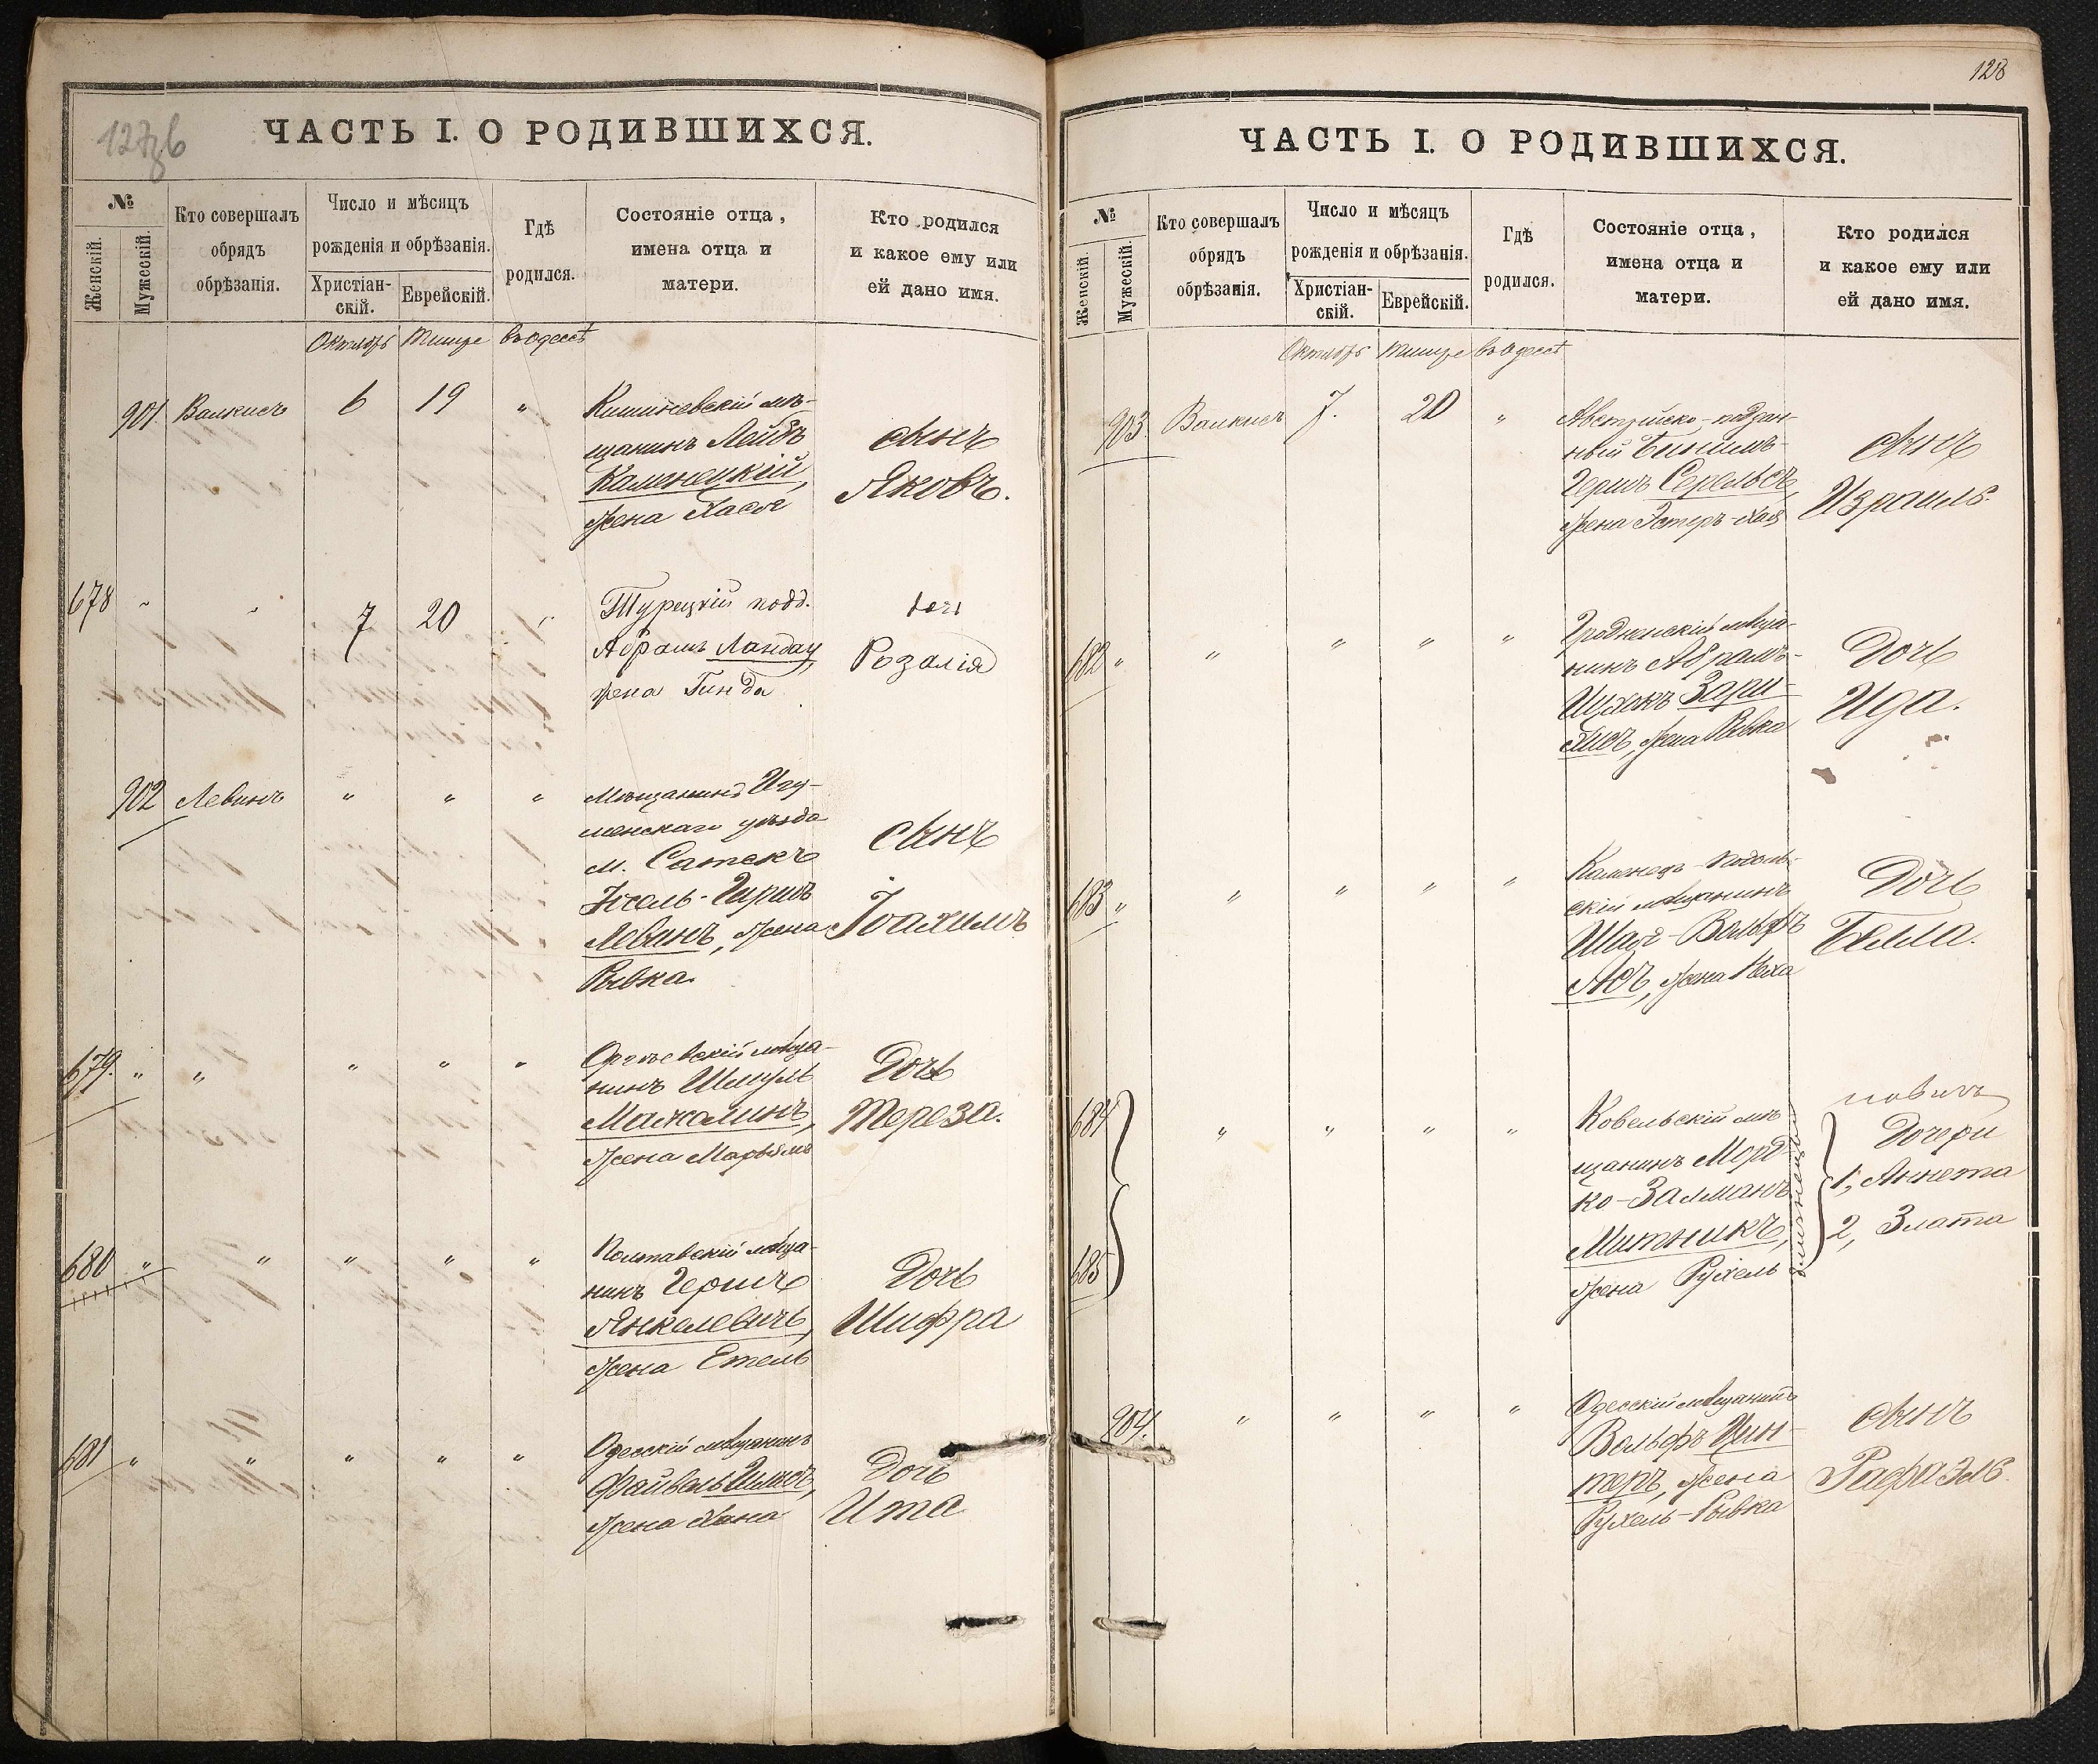 127об
ЧАСТЬ I. О РОДИВШИХСЯ.
№
Женскій.
Мужескій.
Кто совершалъ
обрядъ
обрѣзанія.
Число и мѣсяцъ
рожденія и обрѣзанія.
Христіан-
скій.
Еврейскій.
Гдѣ
родился.
Состояніе отца,
имена отца и
матери.
Кто родился
и какое ему или
ей дано имя.
Октябрь Тишре въ Одессѣ
901. Валкисъ 6 19 "
Кишиневскій мѣ-
щанинъ Лейбъ
Каменецкій,
жена Хася
сынъ
Яковъ.
678 " " 7 20 "
Турецкій подд.
Абрамъ Ландау,
жена Гинда
дочь
Розалія
902 Левинъ " " "
Мѣщанинъ Игу-
менскаго уѣзда
м.
Левинъ, жена
Рывка.
сынъ
Іоахимъ
679. " " " " "
Оргѣевскій мѣща-
нинъ Шмуль
жена Марьямъ
Дочь
Тереза.
680 " " " " "
Полтавскій мѣща-
нинъ Гершъ
Янкелевичъ,
жена Етель
Дочь
Шифра
681 " " " " "
Одесскій мѣщанинъ
Файвель
жена Хана
Дочь
Ита
128
ЧАСТЬ I. О РОДИВШИХСЯ.
№
Женскій.
Мужескій.
Кто совершалъ
обрядъ
обрѣзанія.
Число и мѣсяцъ
рожденія и обрѣзанія.
Христіан-
скій.
Еврейскій.
Гдѣ
родился.
Состояніе отца,
имена отца и
матери.
Кто родился
и какое ему или
ей дано имя.
Октябрь Тишре въ Одессѣ
903. Валкисъ 7. 20 "
Австрійско-поддан-
ный
Гершъ
жена Эстеръ-Хая
сынъ
Израиль.
682 " " " " "
Гродненскій мѣща-
нинъ Абрамъ-
Ицхокъ
жена Рывка
Дочь
Ида.
683 " " " " "
Каменецъ-Подоль-
скій мѣщанинъ
Шая-Вольфъ
жена Неха
Дочь
Белла.
684
685 " " " "
Ковельскій мѣ-
щанинъ Морд-
ко-Залманъ
Митникъ,
жена Рухель
близнецы
Дочери
1, Аннета
2, Злата
904. " " " "
Одесскій мѣщанинъ
Вольфъ Цин-
теръ, жена
Рухель-Рывка
сынъ
Рафаэль.